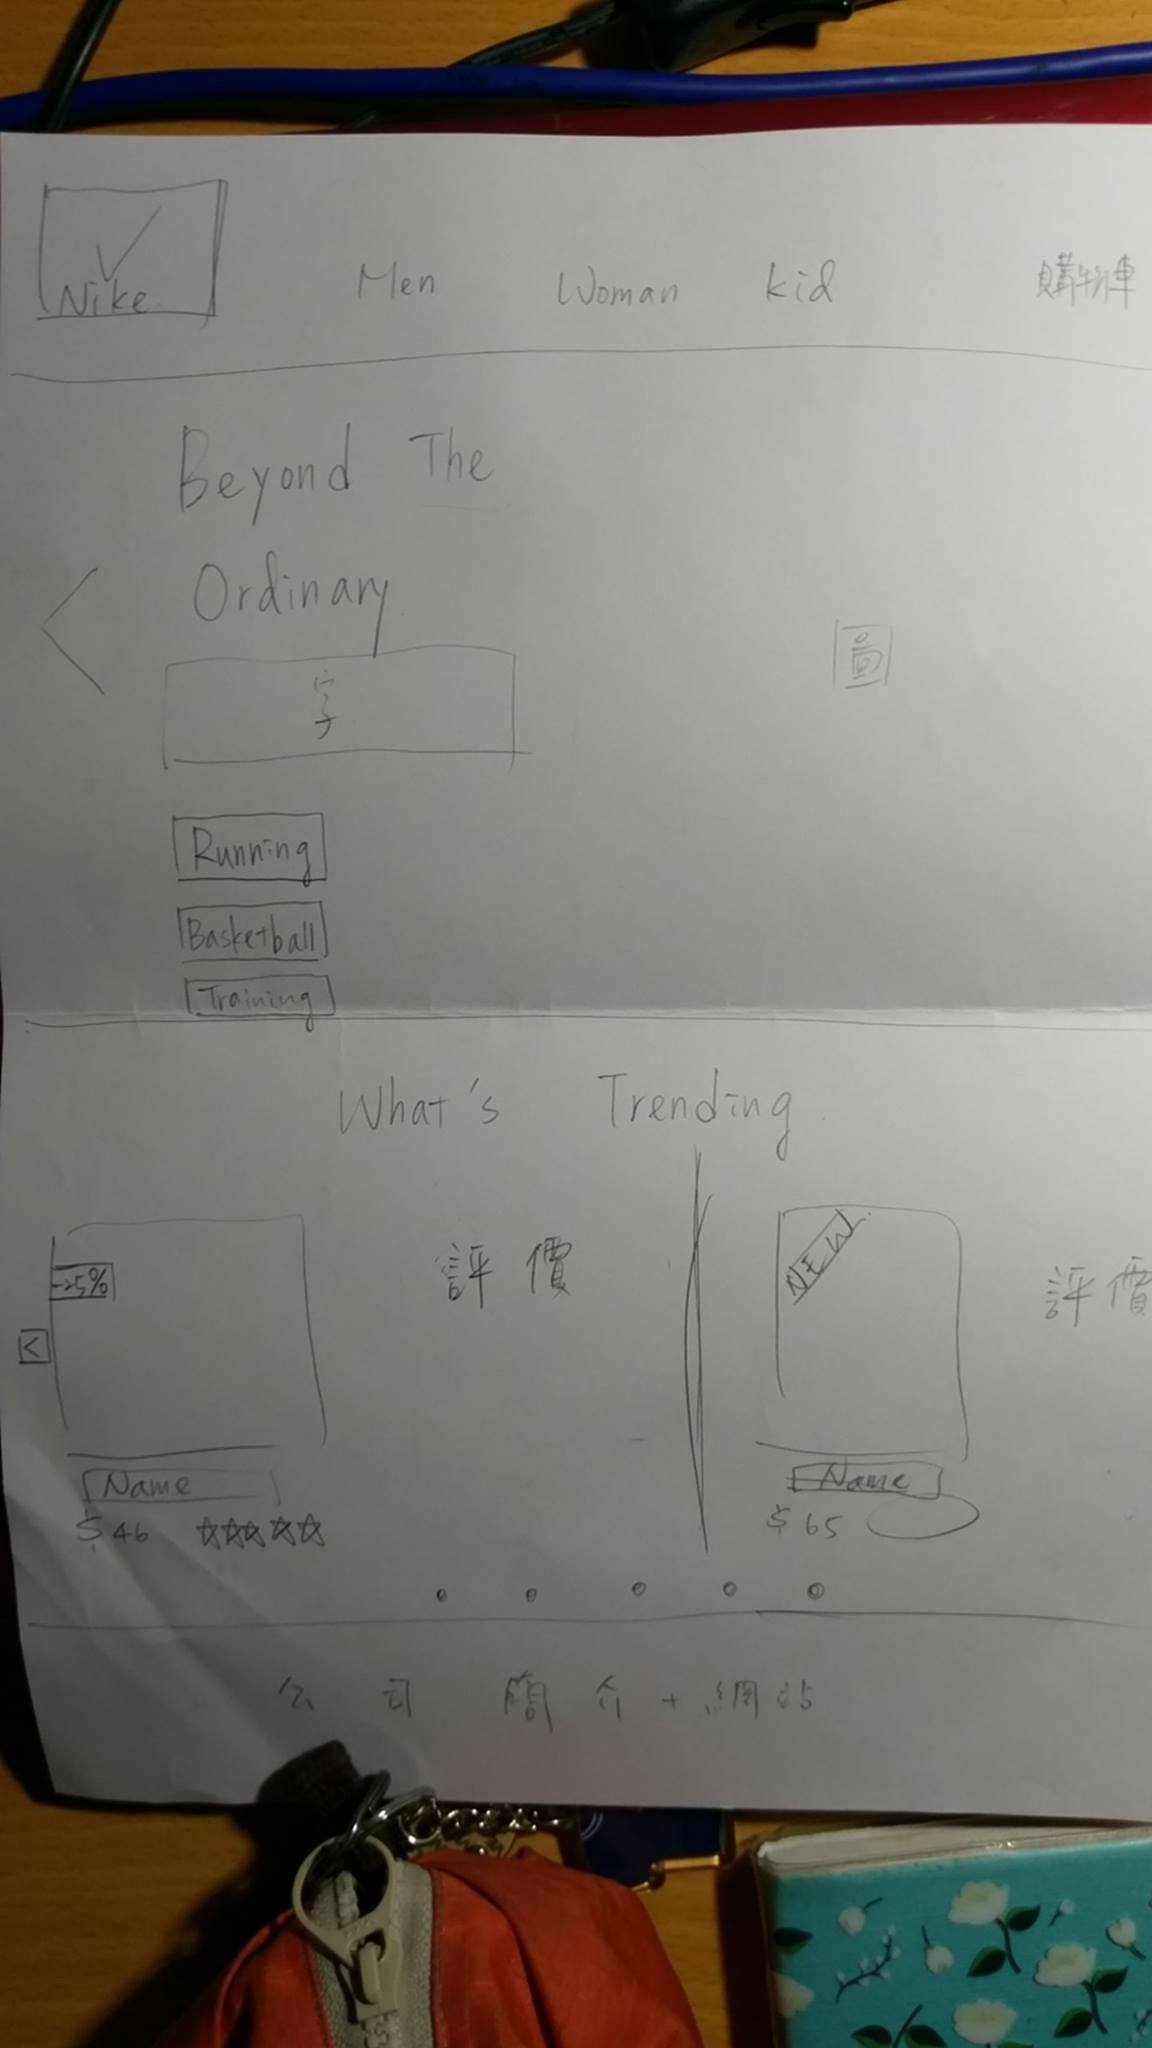 Nike
Men Woman kid 購物車
Beyond The
Ordinary
字
圖
Running
Basketball
Training
What's Trending
-25%
評價
NEW
評價
<
Name
Name
$46
$65
公司簡介+網站